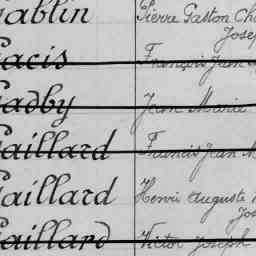 ablin Pierre Gaston Cha
Josep
acis François Jean M
adby Jean Marie
aillard Francis Jean M
aillard Henri Auguste
Jos
aillard Victor Joseph